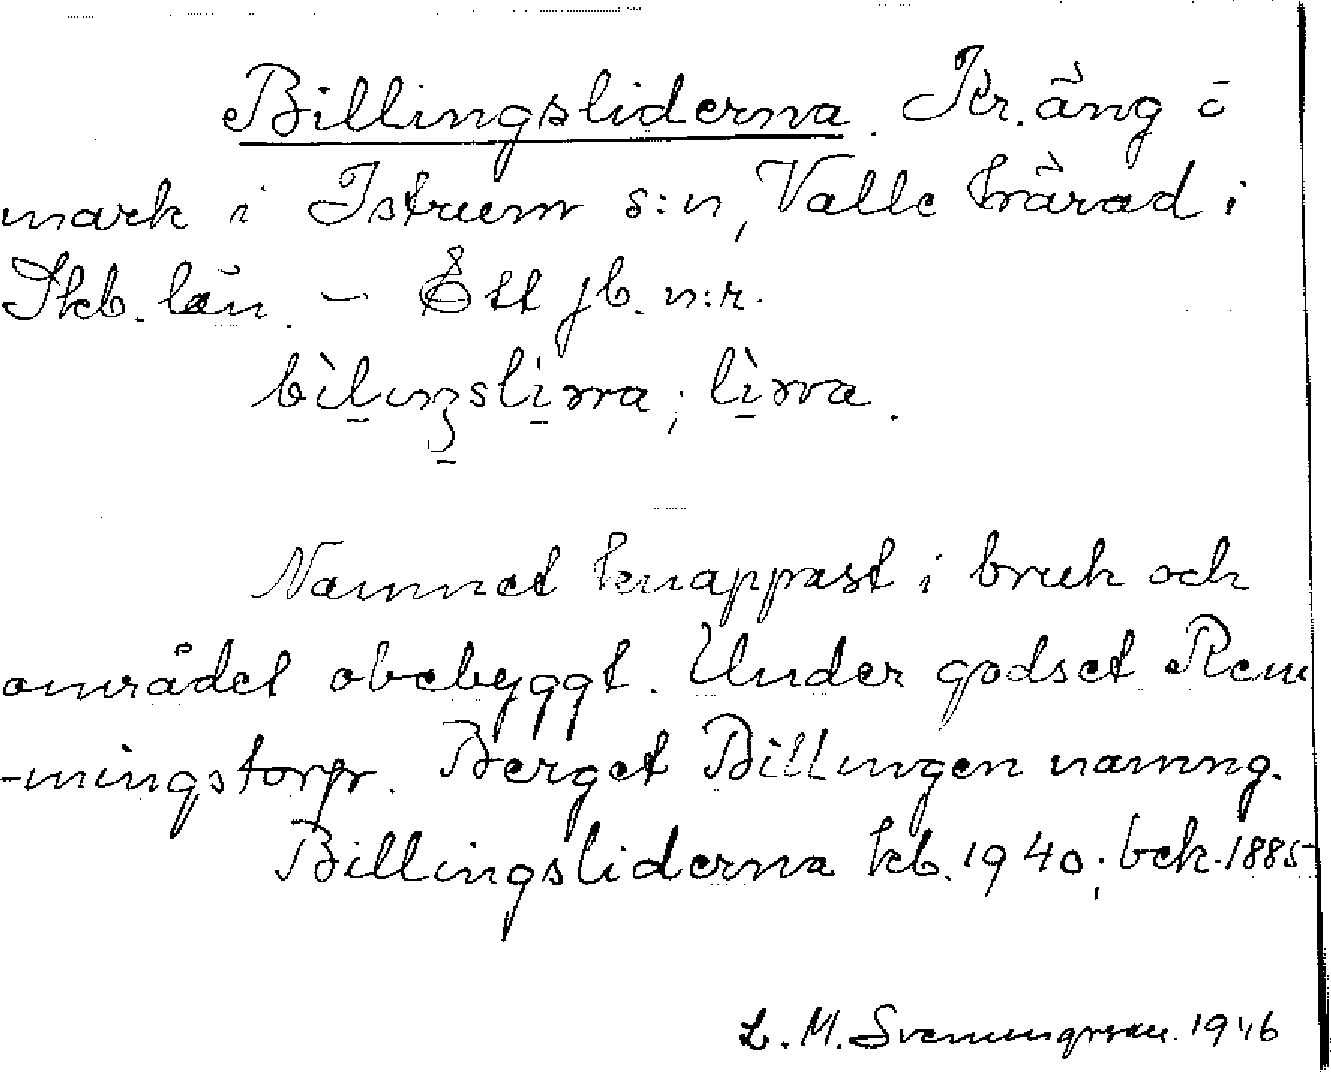 Billingsliderna. Kr. äng ö
mark i Istrum s:n, Valle härad i
Skb. län. – Ett jb. n:r.
bìlıŋslırna; lìrna.
Namnet knappast i bruk och
området obebyggt. Under godset Rem
-mingstorp. Berget Billingen namng.
Billingsliderna kb. 1940; bek. 1885
L. M. Svenungsson. 1946